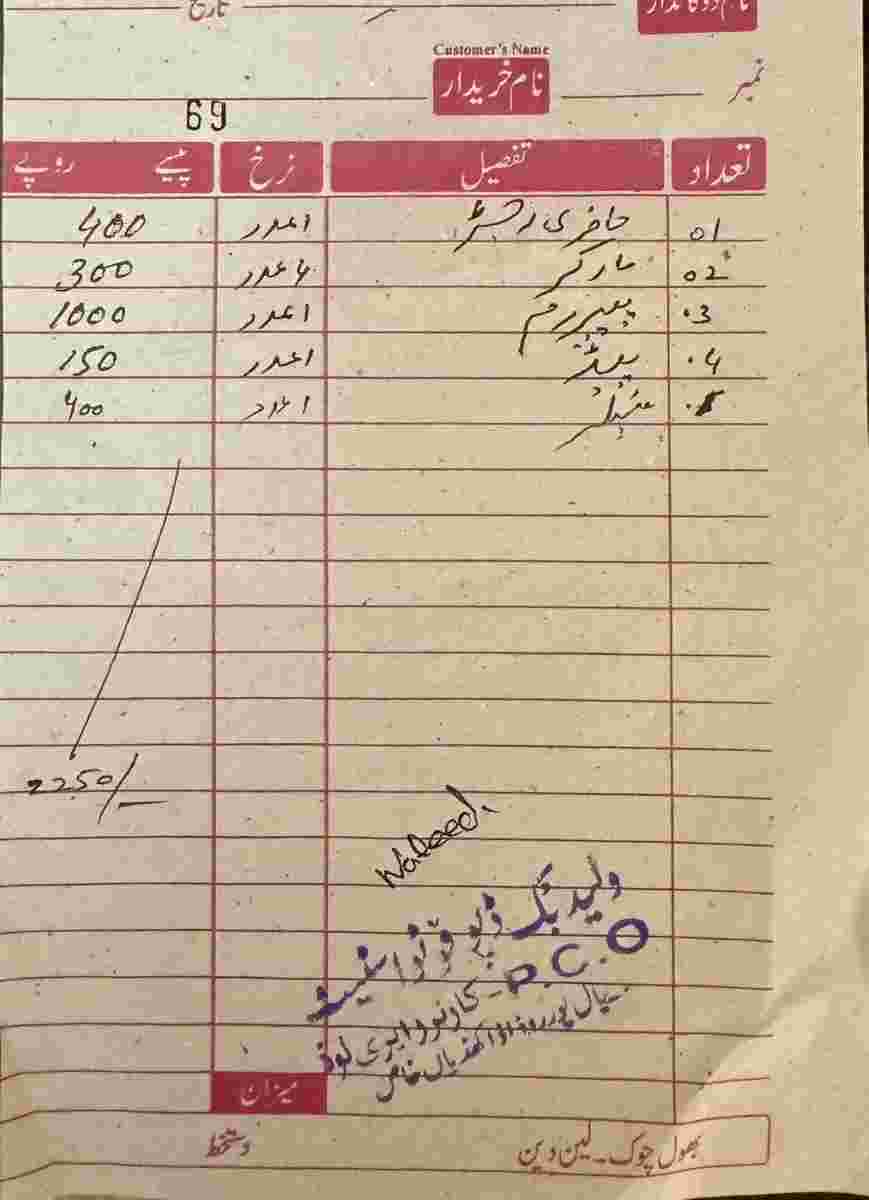 نام دوکاندار تاریخ
Customer's Name
نمبر نام خریدار
69
تعداد تفصیل نرخ پیسے روپے
01 حاضری رجسٹر 1 عدد 400
02 مارکر عدد 300
03 پیپر رم 1 عدد 1000
04 پیڈ 1 عدد 150
05 1 عدد 400
2250/-
Waleed
ولید بک ڈپو فوٹو اسٹیٹ
P.C.O
میزان
بھول چوک ۔ لین دین دستخط